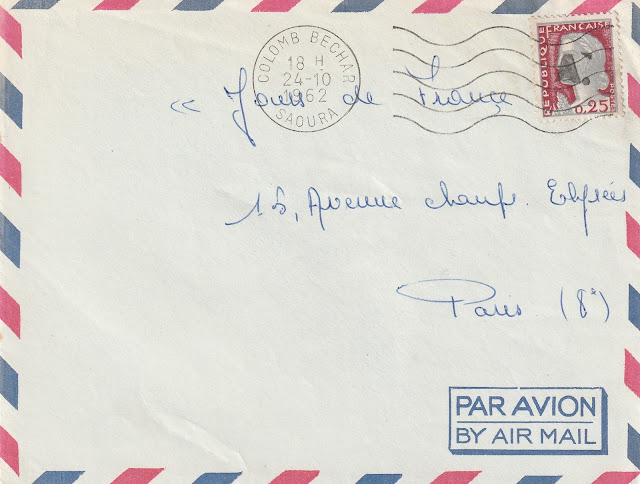 COLOMB BECHAR
18 H
24-10
1962
SAOURA
REPUBLIQUE FRANCAISE
0,25
« Jours de France
15, Avenue champs. Elysées
Paris (8e)
PAR AVION
BY AIR MAIL